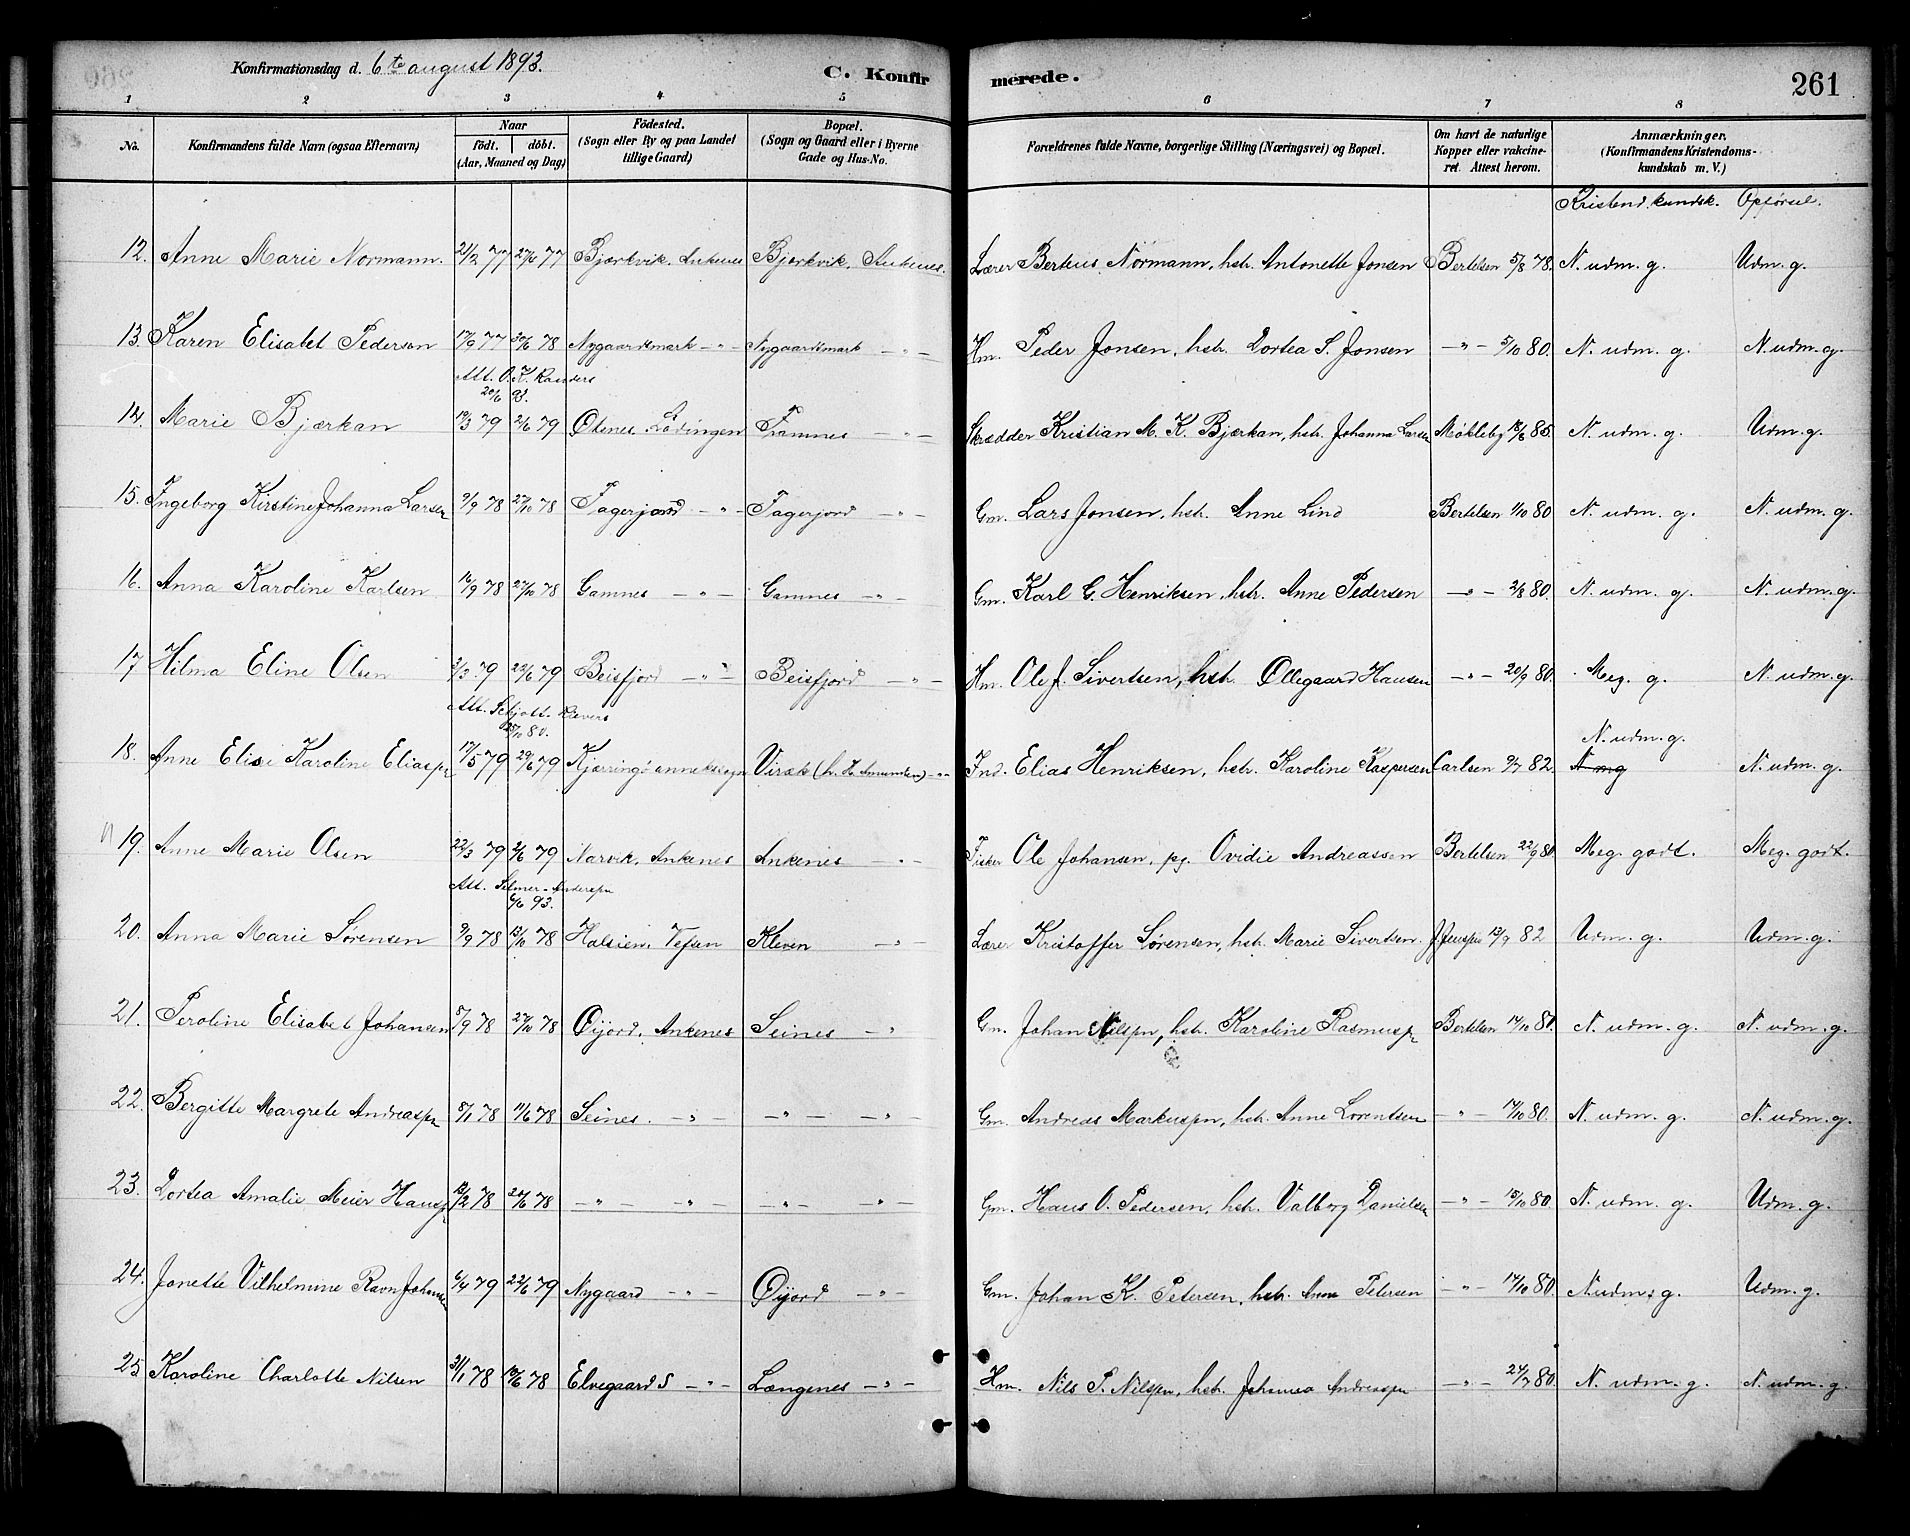 Konfirmationsdag d. 6te august 1893.
C. Konfirmerede.
261
1 2 3 4 5 6 7 8
No.
Konfirmandens fulde Navn (ogsaa Efternavn)
Naar
födt. döbt.
(Aar, Maaned og Dag)
Födested.
(Sogn eller By og paa Landet
tillige Gaard)
Bopæl.
(Sogn og Gaard eller i Byerne
Gade og Hus-No.
Forældrenes fulde Navne, borgerlige Stilling (Næringsvei) og Bopæl.
Om havt de naturlige
Kopper eller vakcine-
ret. Attest herom.
Anmærkninger.
(Konfirmandens Kristendoms-
kundskab m. V.)
Kristend. kundsk. Opførsel.
12. Anne Marie Normann. 21/2 77 27/6 77 Bjærkvik, Ankenes Bjerkvik, Ankenes. Lærer Berteus Normann, hstr. Antonette Jonsen Bertelsen 5/8 78. N. udm. g. Udm. g.
13. Karen Elisabet Pedersen 17/6 77 30/6 78 Nygaardsmark - " - Nygaardsmark - " - Hm. Peder Jonsen, hstr. Dortea S. Jonsen - " - 5/10 80. N. udm. g. N. udm. g.
Att. O. K. Randers
20/6 93.
14. Marie Bjærkan 19/3 79 2/6 79 Otenes, Lödingen Framnes " - Skrædder Kristian M. K. Bjærkan, hstr. Johanna Larsen Mökleby 18/8 85. N. udm. g. Udm. g.
15. Ingeborg Kirstine Johanna Larsen 9/9 78 27/10 78 Fagerjord - " - Fagerjord - " - Gm. Lars Jonsen, hstr. Anne Lind Bertelsen 1/10 80 N. udm. g. N. udm. g.
16. Anna Karoline Karlsen 16/9 78 27/10 78 Gamnes - " - Gamnes - " - Gm. Karl G. Henriksen, hstr. Anne Pedersen - " - 2/8 80. N. udm. g. N. udm. g.
17 Hilma Eline Olsen 3/3 79 22/6 79 Beisfjord - " - Beisfjord - " - Hm. Ole J. Sivertsen, hstr. Ollegaard Hansen - " - 20/9 80. Meg. g. N. udm. g.
Att. Schjött
25/10 80.
N. udm. g.
18. Anne Elise Karoline Eliaspn 17/5 79 29/6 79 Kjærringö annekssogn Virak (hr. H. Amundsen) - " - Ind. Elias Henriksen, hstr. Karoline Kaspersen Carlsen 9/7 82. N mg N. udm. g.
19. Anne Marie Olsen 22/3 79 2/6 79 Narvik, Ankenes Ankenes " - Fisker Ole Johansen, pg. Ovidie Andreassen Bertelsen 22/9 80. Meg. godt. Meg. godt.
Att. Selmer-Anderspn
6/6 93.
20. Anna Marie Sørensen 9/9 78 13/10 78 Halsien, Vefsen Kleven - " - Lærer Kristoffer Sørensen, hstr. Marie Sivertsen. J. Jenspn 19/9 82 Udm. g. Udm. g.
21. Peroline Elisabet Johansen 8/9 78 27/10 78 Öijord, Ankenes Seines - " Gm. Johan Nilspn, hstr. Karoline Rasmuspn Bertelsen 14/10 80. N. udm. g. N. udm. g.
22. Bergitte Margrete Andreaspn 8/1 78 11/6 78 Seines. - " - - " - - " - Gm. Andreas Markuspn, hstr. Anne Lorentsen - " - 14/10 80. N. udm. g. N. udm. g.
23. Dortea Amalie Meier Hanspn 12/2 78 20/6 78 - " - " - - " - " - Gm. Hans O. Pedersen, hstr. Valborg Danielsen - " - 15/10 80. N. udm. g. Udm. g.
24. Jonette Vilhelmine Ravn Johansen 6/4 79 22/6 79 Nygaard - " - Öijord - " - Gm. Johan K. Petersen, hstr. Anne Petersen - " - 14/10 80. N. udm. g. Udm. g.
25 Karoline Charlotte Nilsen 31/1 78 10/6 78 Elvegaard S - " - Længenes - " - Hm. Nils P. Nilspn, hstr. Johanna Andreaspn - " - 24/7 80. N. udm. g. N. udm. g.